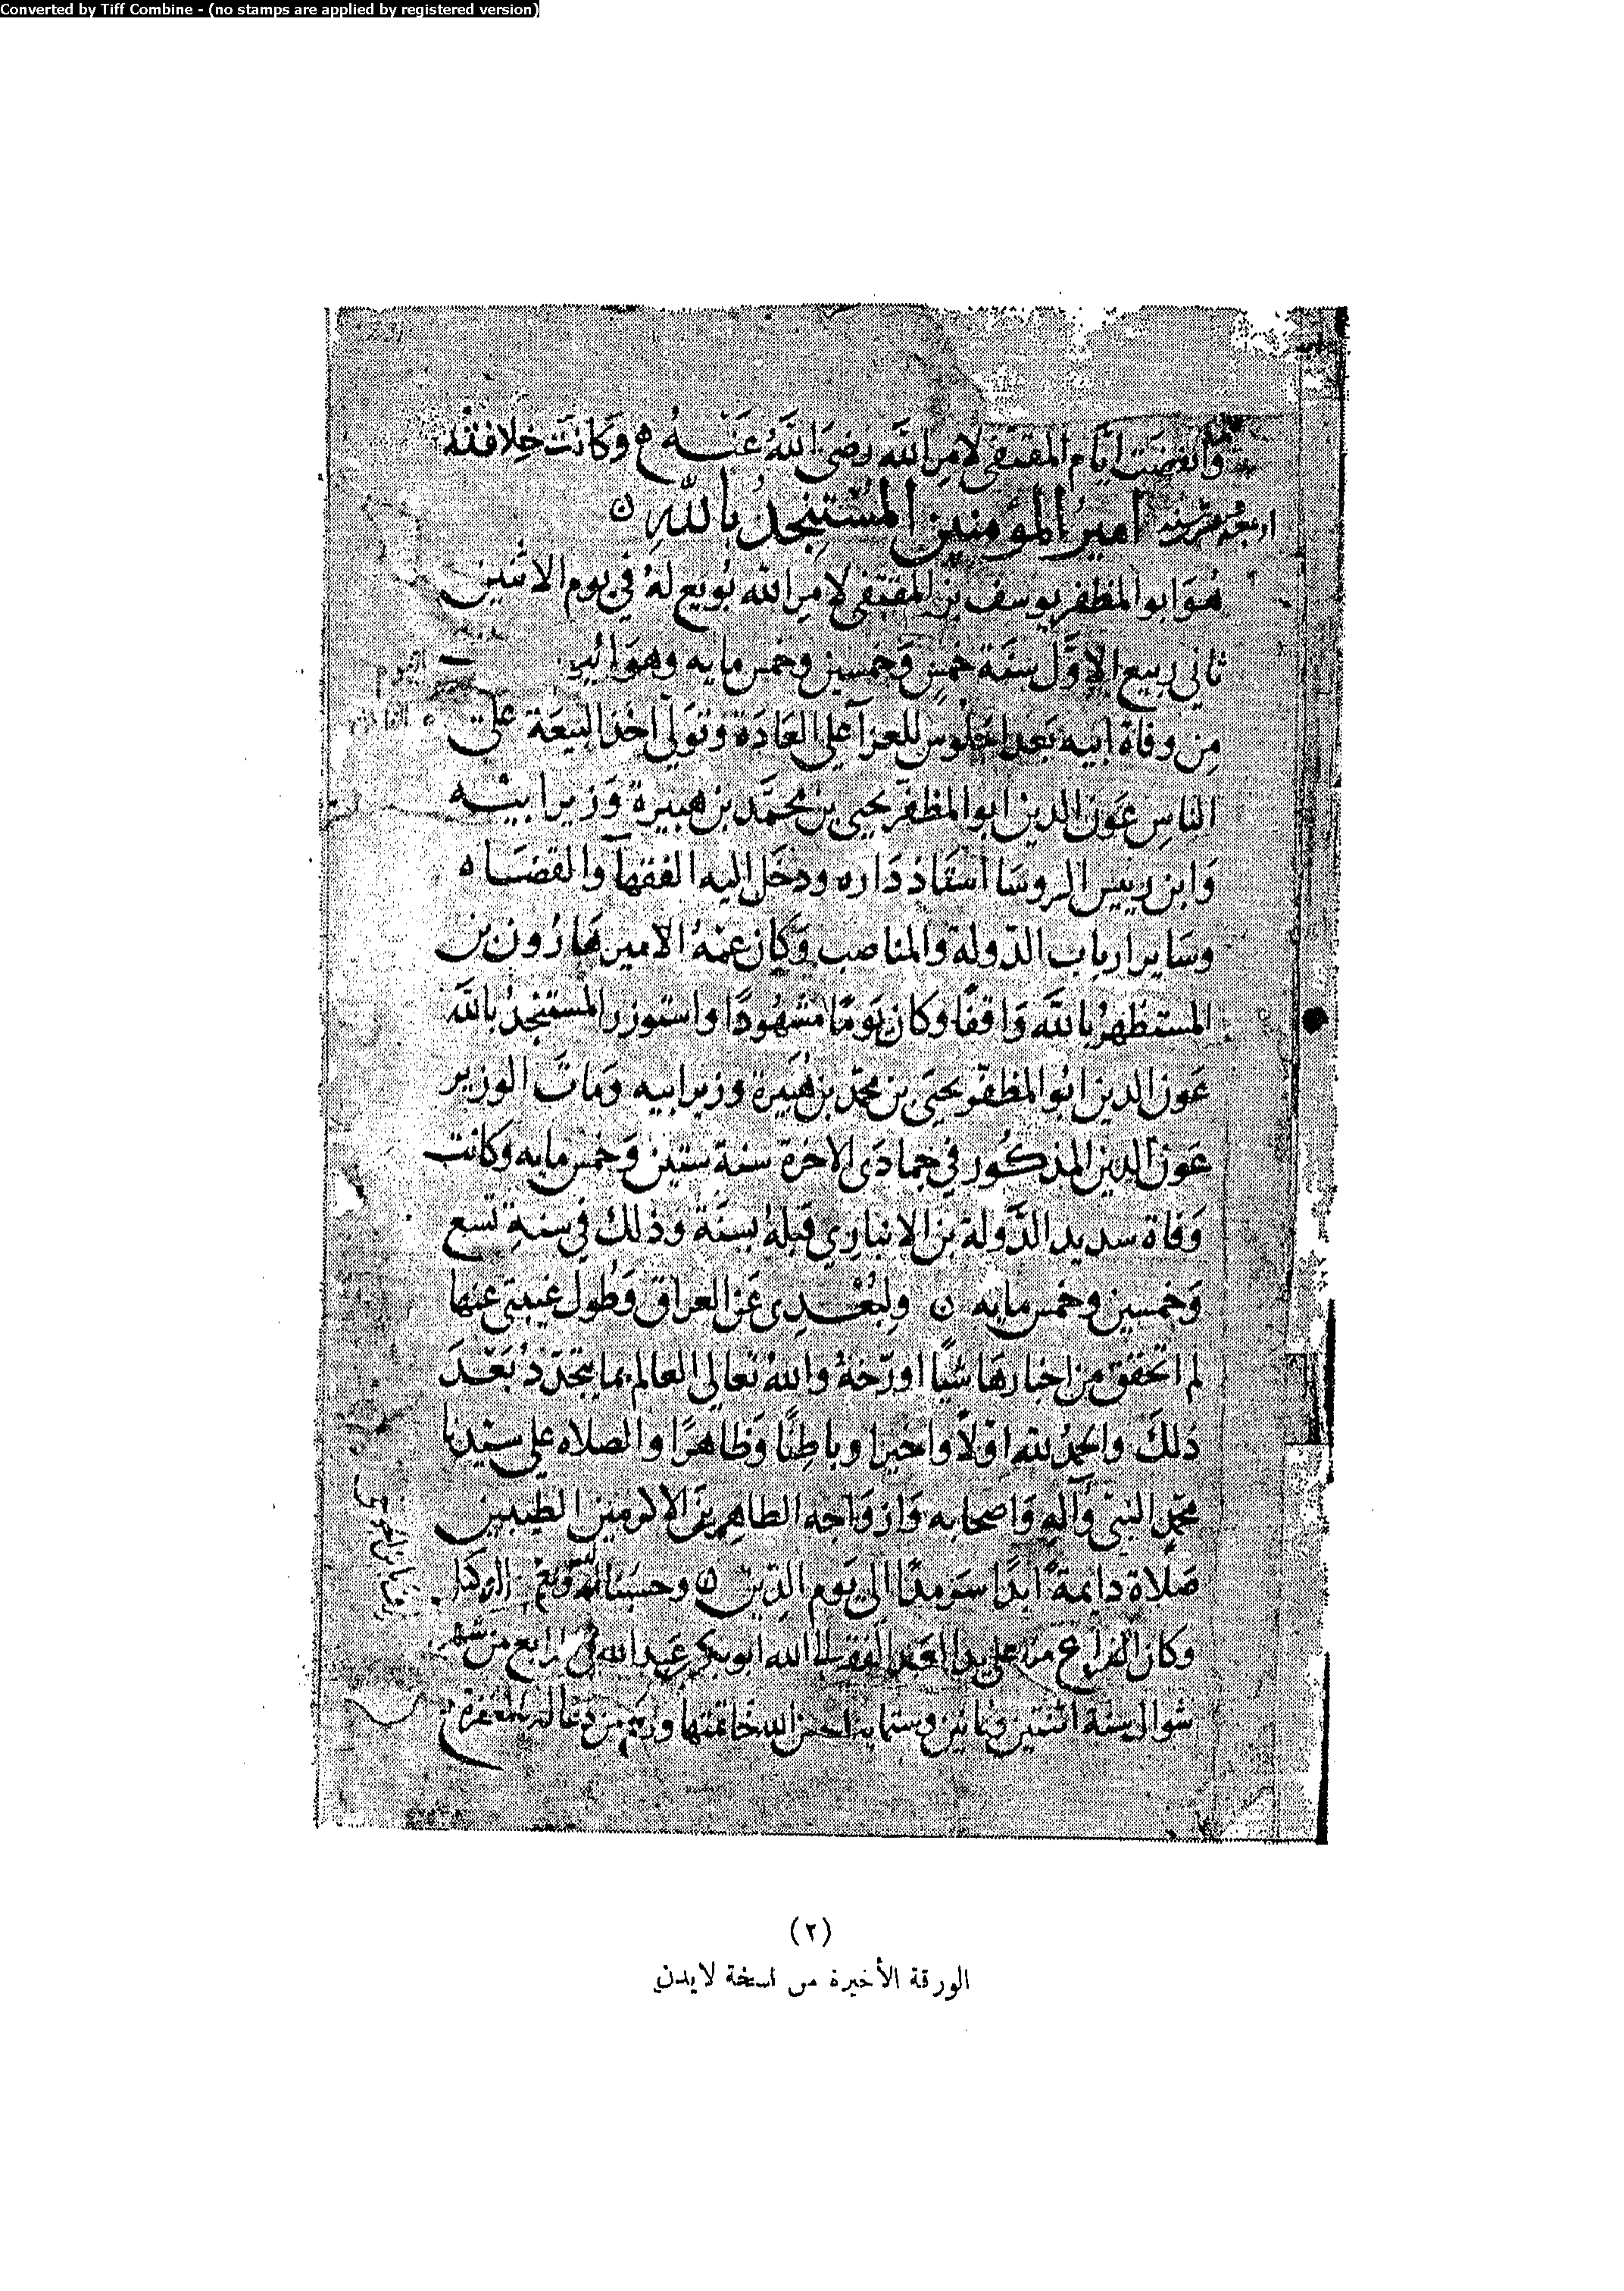 Converted by Tiff Combine - (no stamps are applied by registered version)
وانقضت ايام المقتفى لامر الله رضى الله عنه ه وكانت خلافته
امير المؤمنين المستنجد بالله ن
هو ابو المظفر يوسف بن المقتفى لامر الله بويع له في يوم الاثنين
ثاني ربيع الاول سنة خمس وخمسين وخمس مايه وهو
من وفاة ابيه بعد الجلوس للعزآ على العادة وتولى اخذ البيعة على
الناس عون الدين ابو المظفر يحيى بن محمد بن هبيرة وزير ابيه
وابن رييس الروسا استاذ داره ودخل اليه الفقهآ والقضاه
وساير ارباب الدولة والمناصب وكان عمه الامير هارون بن
المستظهر بالله واقفا وكان يوما مشهودا واستوزر المستنجد بالله
عون الدين ابو المظفر يحيى بن محمد بن هبيرة وزير ابيه ومات الوزير
عون الدين المذكور في جمادى الاخرة سنة ستين وخمس مايه وكانت
وفاة سديد الدولة بن الانباري قبله بسنة وذلك في سنة تسع
وخمسين وخمس مايه ن ولبعدى عن العراق وطول غيبتى عنها
لم اتحقق من اخبارها شيا اورخه والله تعالى العالم بما يتجدد بعد
ذلك والحمد لله اولا واخيرا وباطنا وظاهرا والصلاه على سيدنا
محمد النبى وآله واصحابه وازواجه الطاهرين الاكرمين الطيبين
صلاة دايمة ابدا سرمدا الى يوم الدين ن وحسبنا الله ونعم
وكان الفراغ منه على يد العبد الفقير الى الله ابو بكر عبد الله في رابع من شهر
شوال سنة اثنتين وثمانين وستمايه احسن الله خاتمتها ورحم من دعا له بالمغفرة
(٢)
الورقة الأخيرة من نسخة لايدن